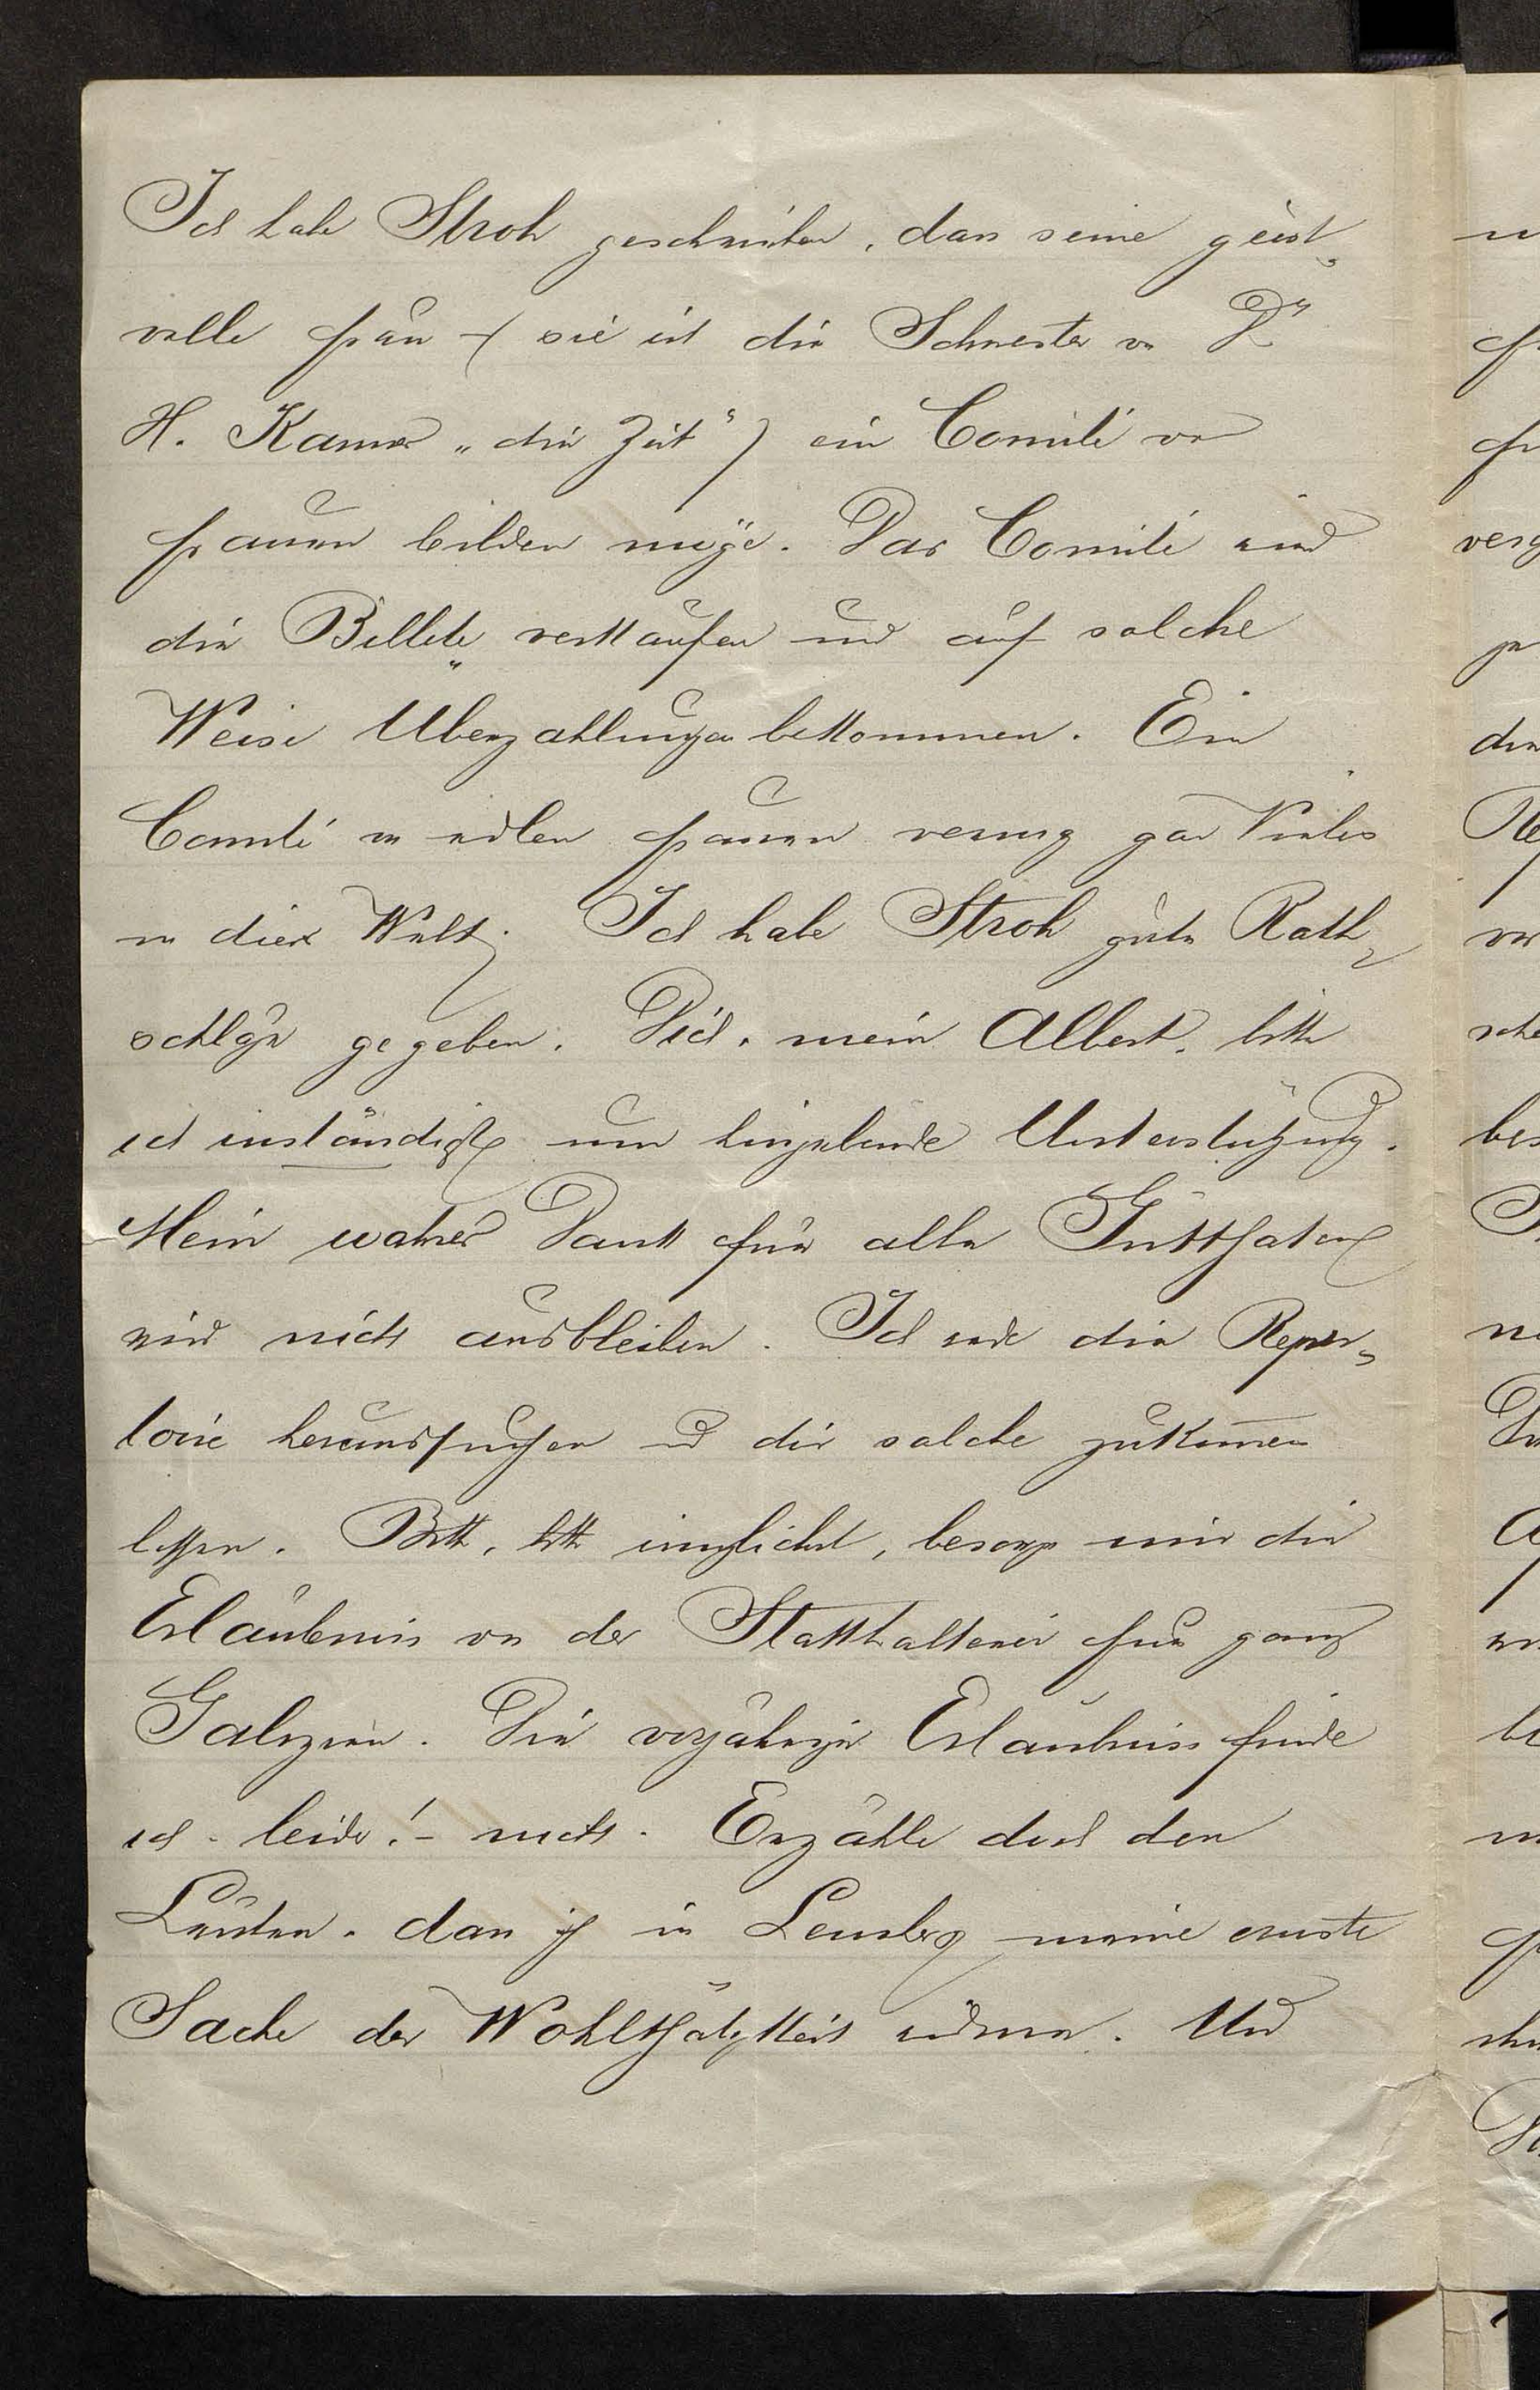 Ich habe Stroh geschrieben, dass seine geist-
volle Frau – (sie ist die Schwester von Dr
H. Kanner „die Zeit") ein Comité von
Frauen bilden möge. Das Comité wird
die Billete verkaufen und auf solche
Weise Überzahlungen bekommen. Ein
Comité von edlen Frauen vermag gar Vieles
in dieser Welt. Ich habe Stroh gute Rath-
schläge gegeben. Dich, mein Albert, bitte
ich inständigst um hingebende Unterstützung.
Mein wahrer Dank für alle Gutthaten
wird nicht ausbleiben. Ich werde die Reper-
toire heraussuchen und dir solche zukommen
lassen. Bitte, bitte innglichst, besorge mir die
Erlaubnis von der Statthalterei für ganz
Galizien. Die vorjährige Erlaubniss finde
ich - leider! - nicht. Erzähle doch den
Leuten, dass ich in Lemberg meine ernste
Sache der Wohlthätigkeit widme. Und